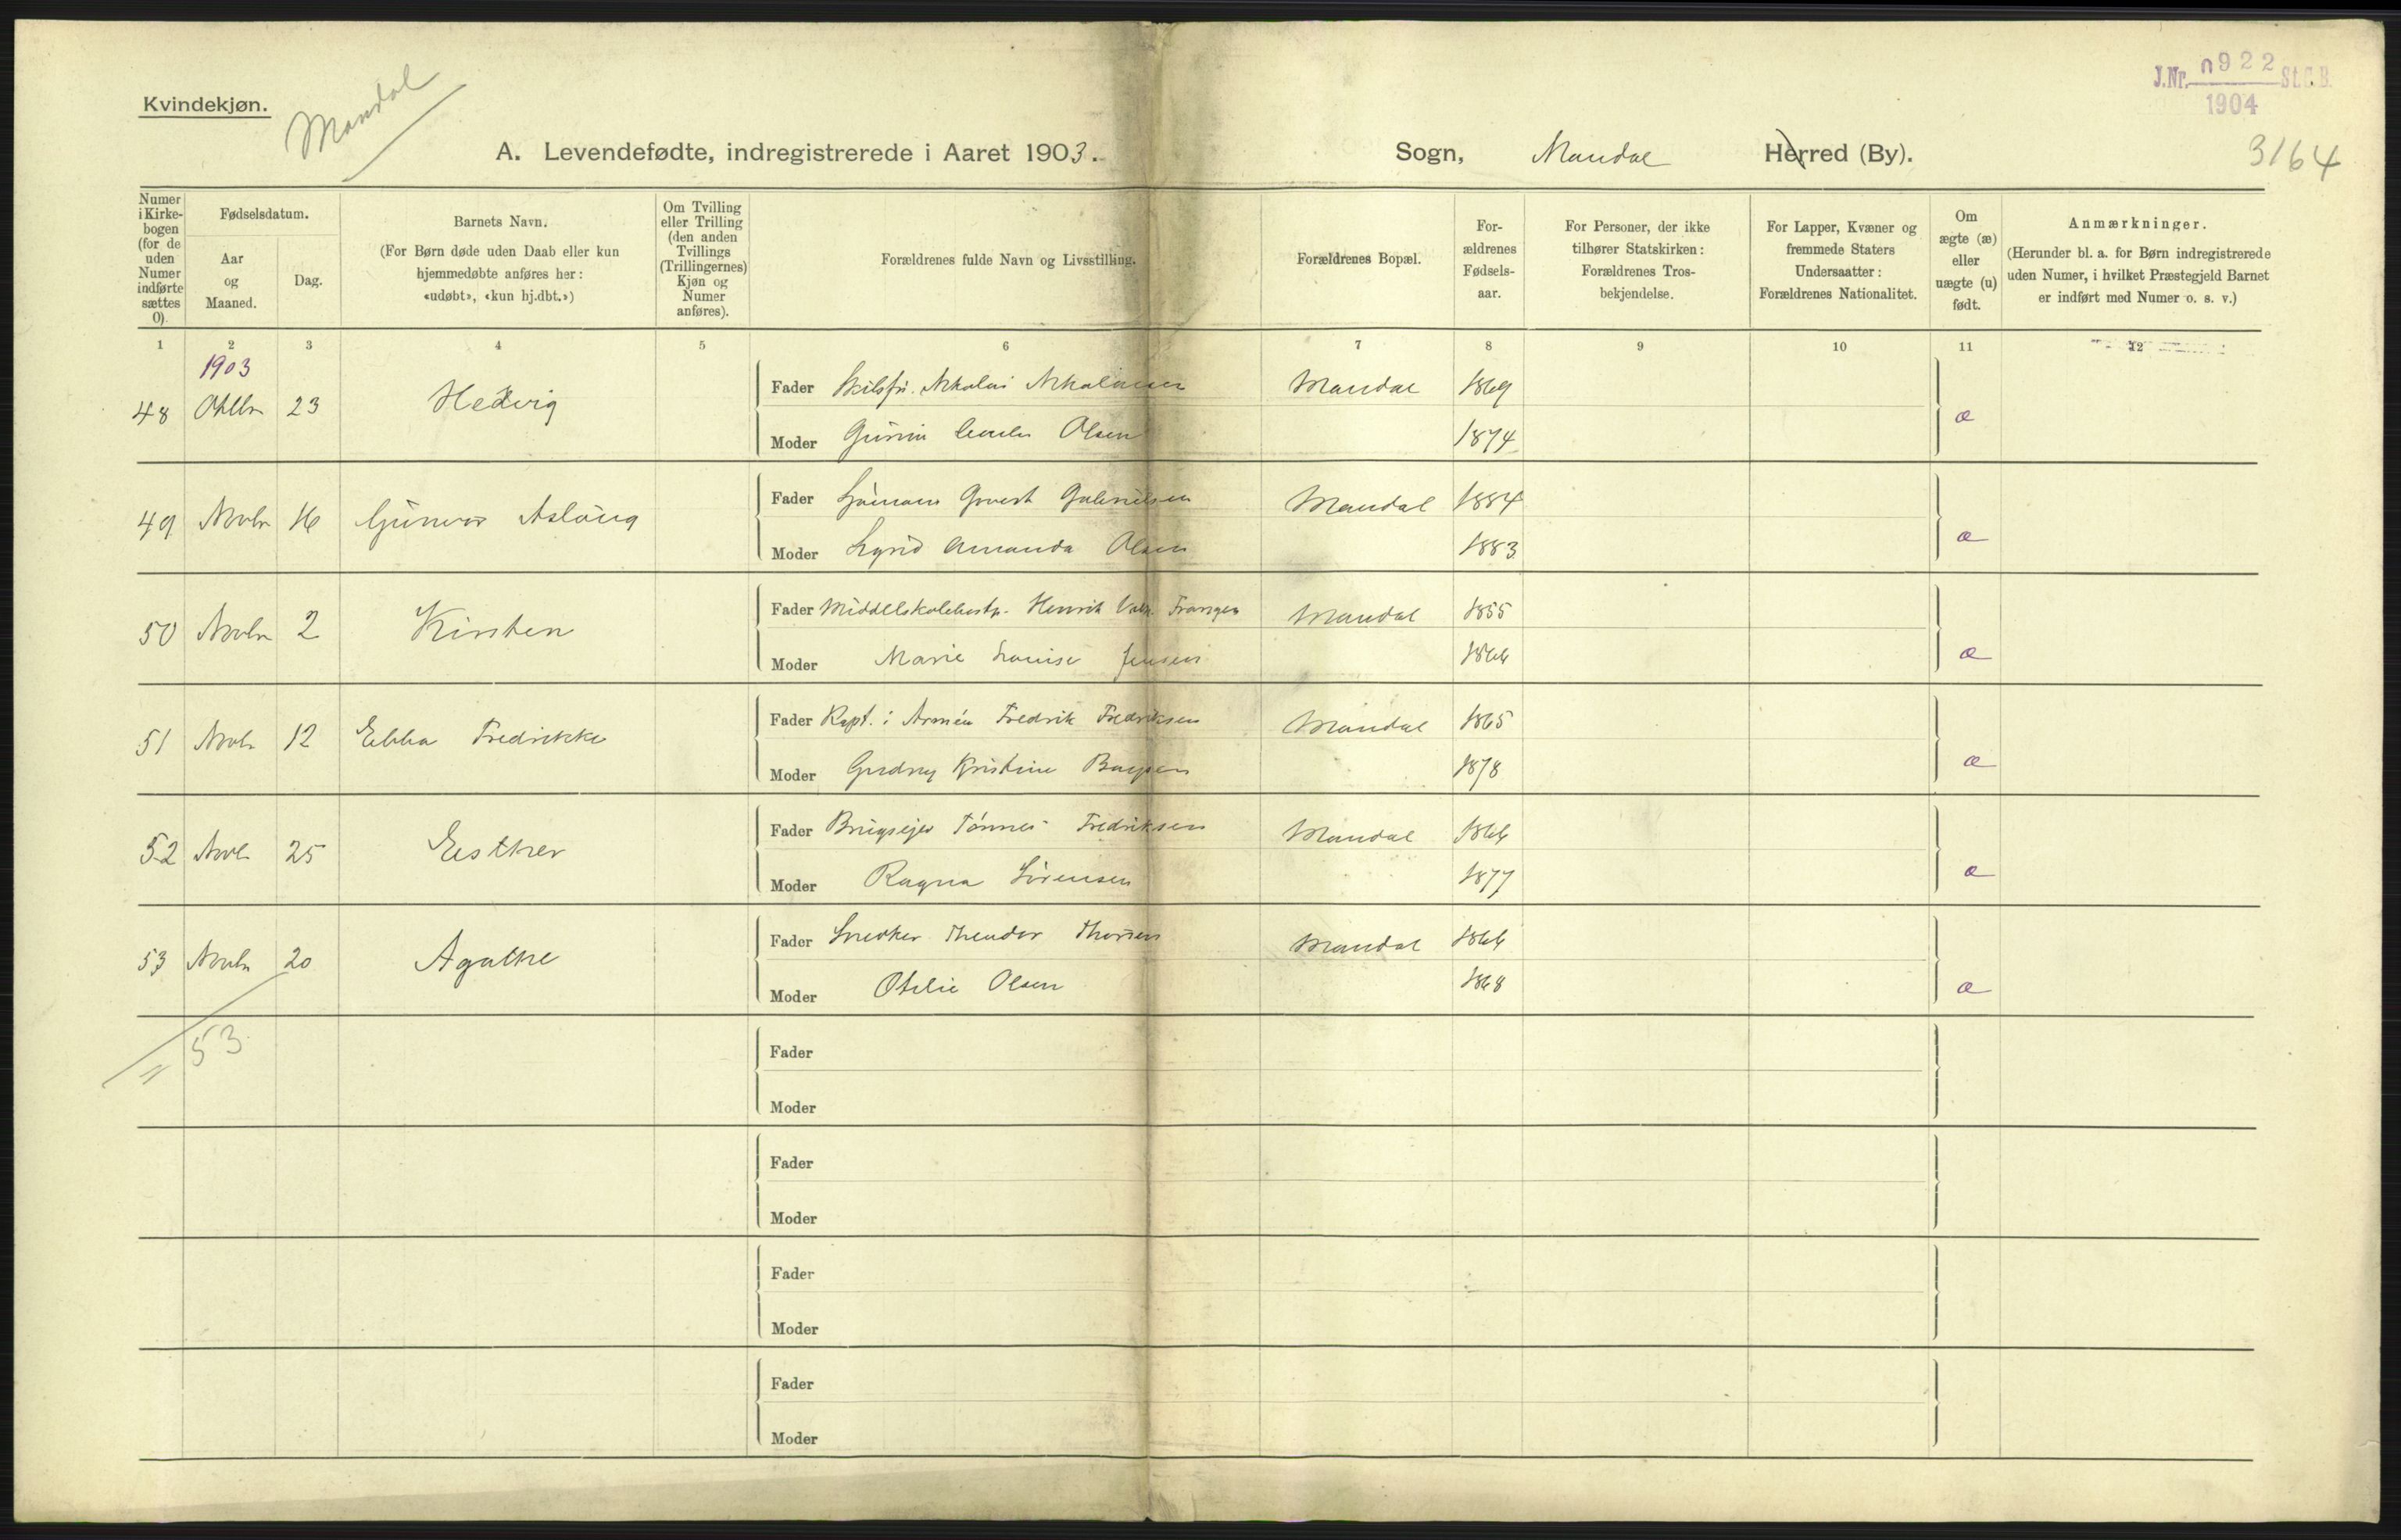 Kvindekjøn.
Mandal
J.Nr. 0922 St.C.B.
1904
3164
A. Levendefødte, indregistrerede i Aaret 1903. Sogn, Mandal Herred (By).
Numer i Kirkebogen (for de uden Numer indførte sættes 0).
Fødselsdatum.
Aar og Maaned.
Dag.
Barnets Navn.
(For Børn døde uden Daab eller kun
hjemmedøbte anføres her:
«udøbt», «kun hj.dbt.»)
Om Tvilling
eller Trilling
(den anden
Tvillings
(Trillingernes)
Kjøn og
Numer
anføres).
Forældrenes fulde Navn og Livsstilling.
Forældrenes Bopæl.
For-
ældrenes
Fødsels-
aar.
For Personer, der ikke
tilhører Statskirken:
Forældrenes Tros-
bekjendelse.
For Lapper, Kvæner og
fremmede Staters
Undersaatter:
Forældrenes Nationalitet.
Om
ægte (æ)
eller
uægte (u)
født.
Anmærkninger.
(Herunder bl. a. for Børn indregistrerede
uden Numer, i hvilket Præstegjeld Barnet
er indført med Numer o. s. v.)
1 2 3 4 5 6 7 8 9 10 11 12
1903
48 Oktbr 23 Hedvig
Fader Nikolai Nikolaisen Mandal 1869
Moder Olsen 1874 æ
49 Novbr 16 Gunvor Aslaug
Fader Gabrielsen Mandal 1884
Moder Sigrid Amanda Olsen 1883 æ
50 Novbr 2 Kirsten
Fader Middelskolebestyr. Henrik Frangen Mandal 1855
Moder Marie Louise Jensen 1866 æ
51 Novbr 12 Ebba Fredrikke
Fader Kapt. i Arméen Fredrik Fredriksen Mandal 1865
Moder Gudny Kristine 1878 æ
52 Novbr 25 Esther
Fader Brugseier Tønnes Fredriksen Mandal 1866
Moder Ragna Sørensen 1877 æ
53 Novbr 20 Agathe
Fader Snedker Theodor Thorsen Mandal 1866
Moder Otilie Olsen 1868 æ
53
Fader
Moder
Fader
Moder
Fader
Moder
Fader
Moder